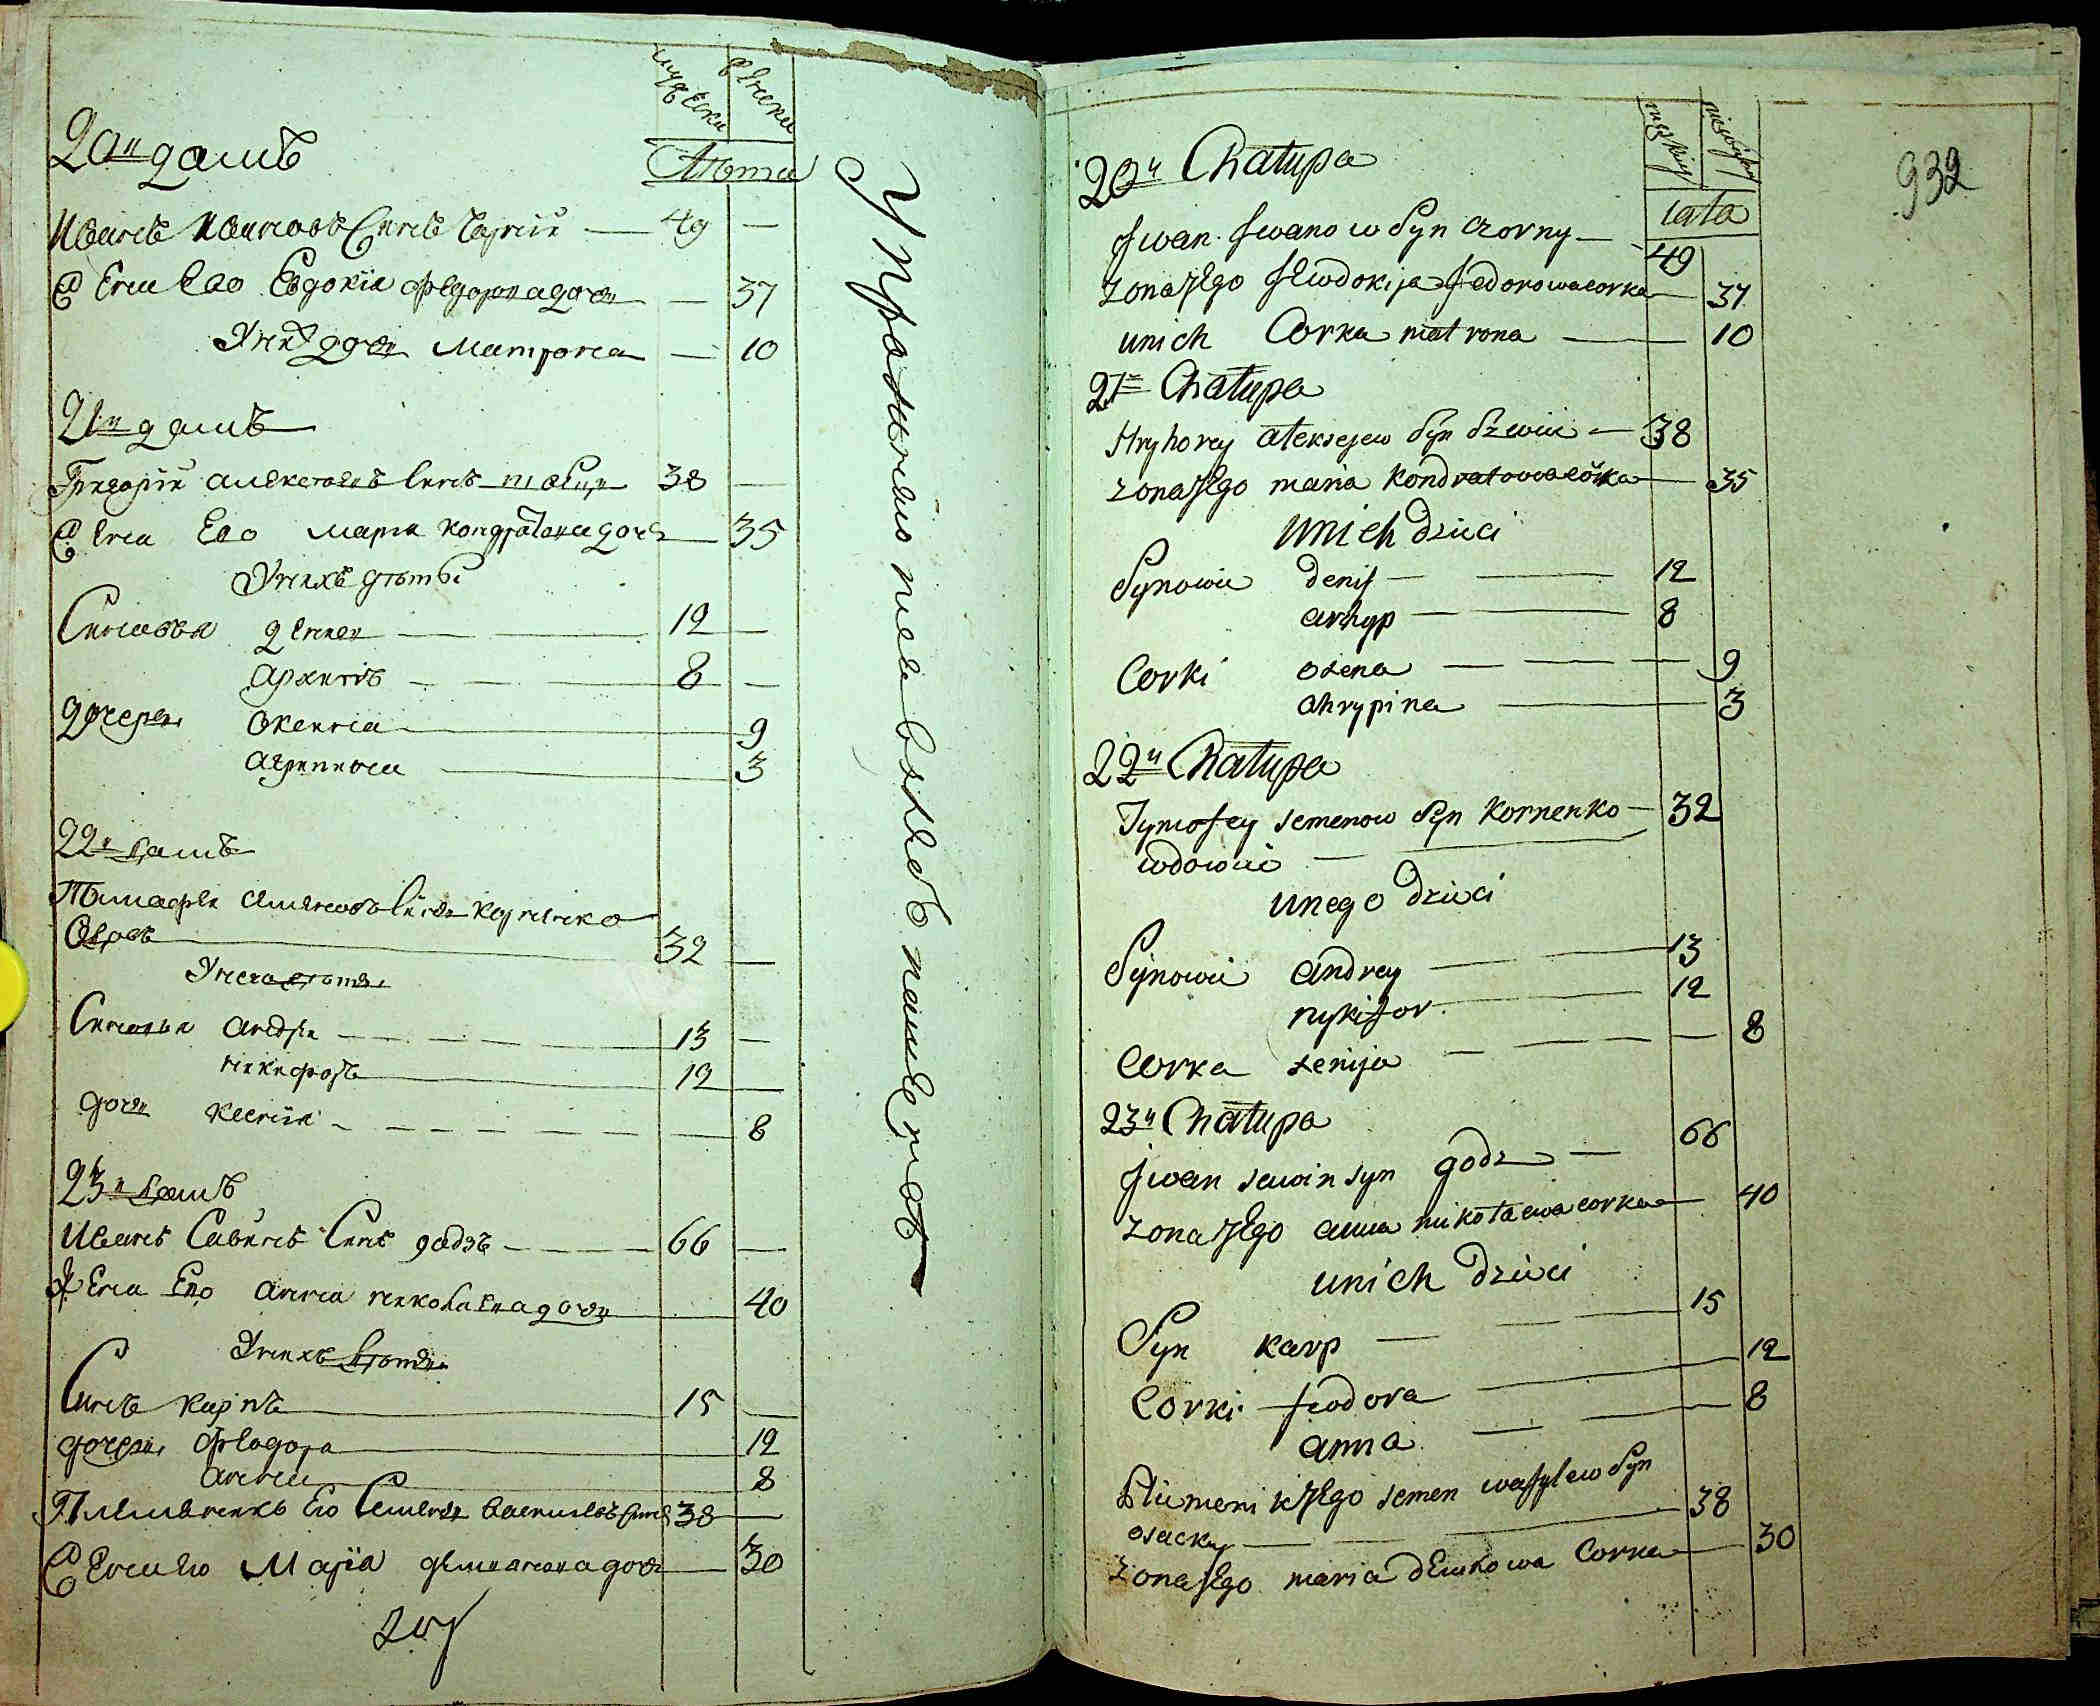 мужеска
женска
Лѣта
20й домъ
Иванъ Ивановъ Синъ Чорній — 49 —
Жена Его Евдокія Федорова дочь — 37
У них дочь Матрона — 10
21й домъ
Григорій Алексѣевъ Синъ Швець 38 —
Жена Его Марія Кондратова дочь — 35
У нихъ дѣти
Синовья Денисъ — 12 —
Архипъ — 8 —
Дочери Оксения — 9
Агрипина — 3
22й домъ
Тимофей Семеновъ Синъ Корненко
вдовъ — 32 —
У него дѣти
Синовья Андрей — 13 —
Никифоръ — 12 —
дочь Ксенія — 8
23й домъ
Иванъ Савинъ Синъ Годзъ — 66 —
Жена Его Анна Николаева дочь — 40
У нихъ дѣти
Синъ Карпъ — 15 —
дочери Феодора — 12
Анна — 8
Племенникъ Его Семенъ Василевъ Синъ 38 —
Жена Его Марія Демянова дочь — 30
męskiey
lata
932
20ta Chałupa
Jwan Jwanow Syn Czorny — 49
żona Jego Jewdokija Fedorowa corka — 37
u nich Corka matrona — 10
21 Chałupa
Hryhorey alexsejew Syn Szewiec — 38
żona Jego maria Kondratowa corka — 35
u nich dzieci
Synowie denis — 12
arhyp — 8
Corki oxena — 9
ahrypina — 3
22 Chałupa
Tymofey semenow Syn Kornenko — 32
wdowiec —
u nego dzieci
Synowie andrey — 13
nykifor — 12
Corka xenija — 8
23 Chałupa
Jwan sawin syn godz — 66
żona Jego anna nikołaewa corka — 40
u nich dzieci
Syn karp — 15
Corki feodora — 12
anna — 8
Pliemenik Jego semen wasylew Syn
osacky — 38
żona Jego maria demkowa Corka — 30